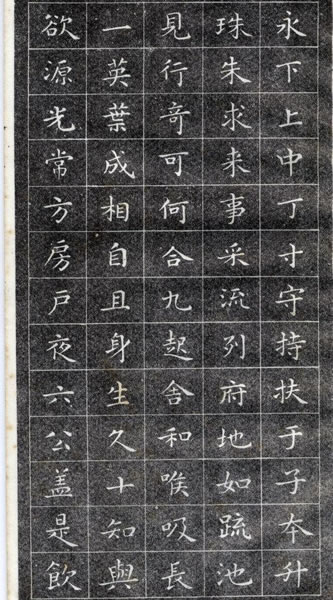 永下上中丁寸守持扶于子夲升
珠朱求来事采流列府地如踈池
見行竒可何合九起舍和喉吸長
一英葉成相自且身生久十知與
欲源光常方房戸夜六公盖是飲